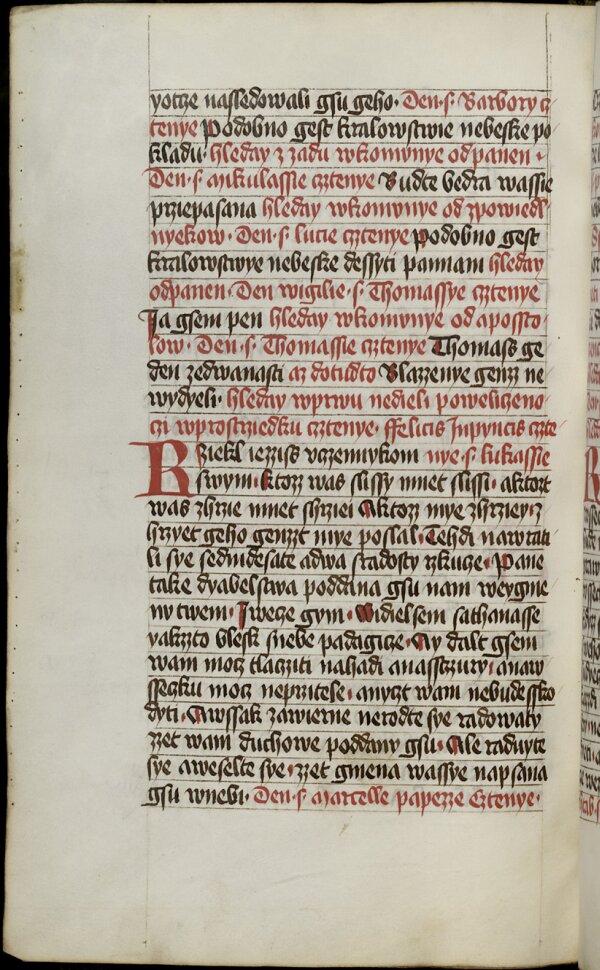 yotcze nassledowali gsu geho · Den · s · Barbory cz
tenye Podobno gest kralowstwie nebeske po
kladu · hleday z zadu wkomunye od panen ·
Den · s · Mikulassie cztenye Budte bedra wassie
prziepasana hleday wkomunye od zpowiedl
nyekow · Den · s · lucie cztenye Podobno gest
kralowstwye nebeske dessyti pannam hleday
od panen · Den wigilie · s · Thomassye cztenye
Ja gsem pen hleday wkomunye od apossto
low · Den · s · Thomassie cztenye Thomass ge
den zedwanasti az dotudto Blazenye genz ne
wydyeli · hleday wprwu nedieli poweliczeno
czi wprostrziedku cztenye · ffelicis Inpyncis czte
Rziekl iezziss vczennykom nye · s · lukassie
swym · ktorz was slissy mnet slissi · aktozt
was zhrzie mnet zhrziei Aktorz mye zhrziey · z
hrzyet geho genzt mye poslal · Tehdi nawrati
li sye sedmdesate adwa sradosty rzkucze · Pane
take dyabelstwa poddana gsu nam weygme
nu twem · I wecze gym · Widiel sem sathanasse
yakzto blesk snebe padagicze · Ay dalt gsem
wam mocz tlacziti nahadi anasstiury · anaw
sseczku mocz neprzitele · anyczt wam nebude ssko
dyti · Awssak zawierne nerodte sye radowaty
zzet wam duchowe poddany gsu · Ale raduyte
sye aweselte sye · zzet gmena wassye napsana
gsu wnebi · Den · s · Marcelle papezze Cztenye ·